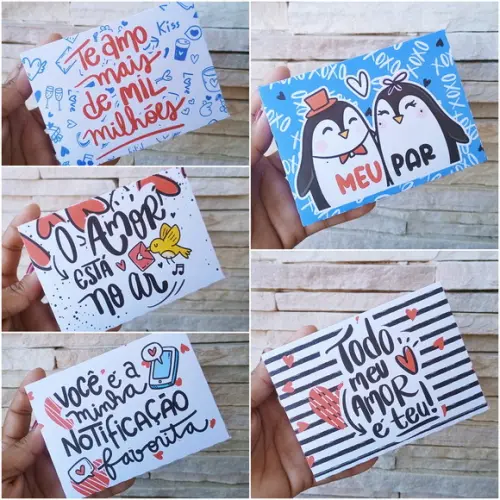 Te amo
mais
de MIL
milhões
Kiss
XOXO
MEU PAR
O AMOR
ESTÁ
no ar
VOCÊ é a
minha
NOTIFICAÇÃO
favorita
TODO
meu
AMOR
é teu!